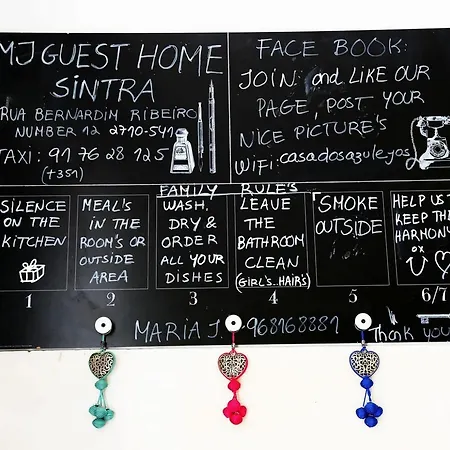 MJ GUEST HOME
SINTRA
RUA BERNARDIM RIBEIRO
NUMBER 12 2710-541
TAXI: 91 76 28 125
(+351)
FACE BOOK:
JOIN and LIKE OUR
PAGE, POST YOUR
NICE PICTURE'S
WiFi: casadosazulejos
FAMILY RULE'S
SILENCE
ON THE
KITCHEN
1
MEAL'S
IN THE
ROOM'S OR
OUTSIDE
AREA
2
WASH.
DRY &
ORDER
ALL YOUR
DISHES
3
LEAVE
THE
BATHROOM
CLEAN
(GIRL'S..HAIR'S)
4
SMOKE
OUTSIDE
5
HELP US
KEEP THE
HARMONY
OX
6/7
MARIA J. 968168881
Thank you